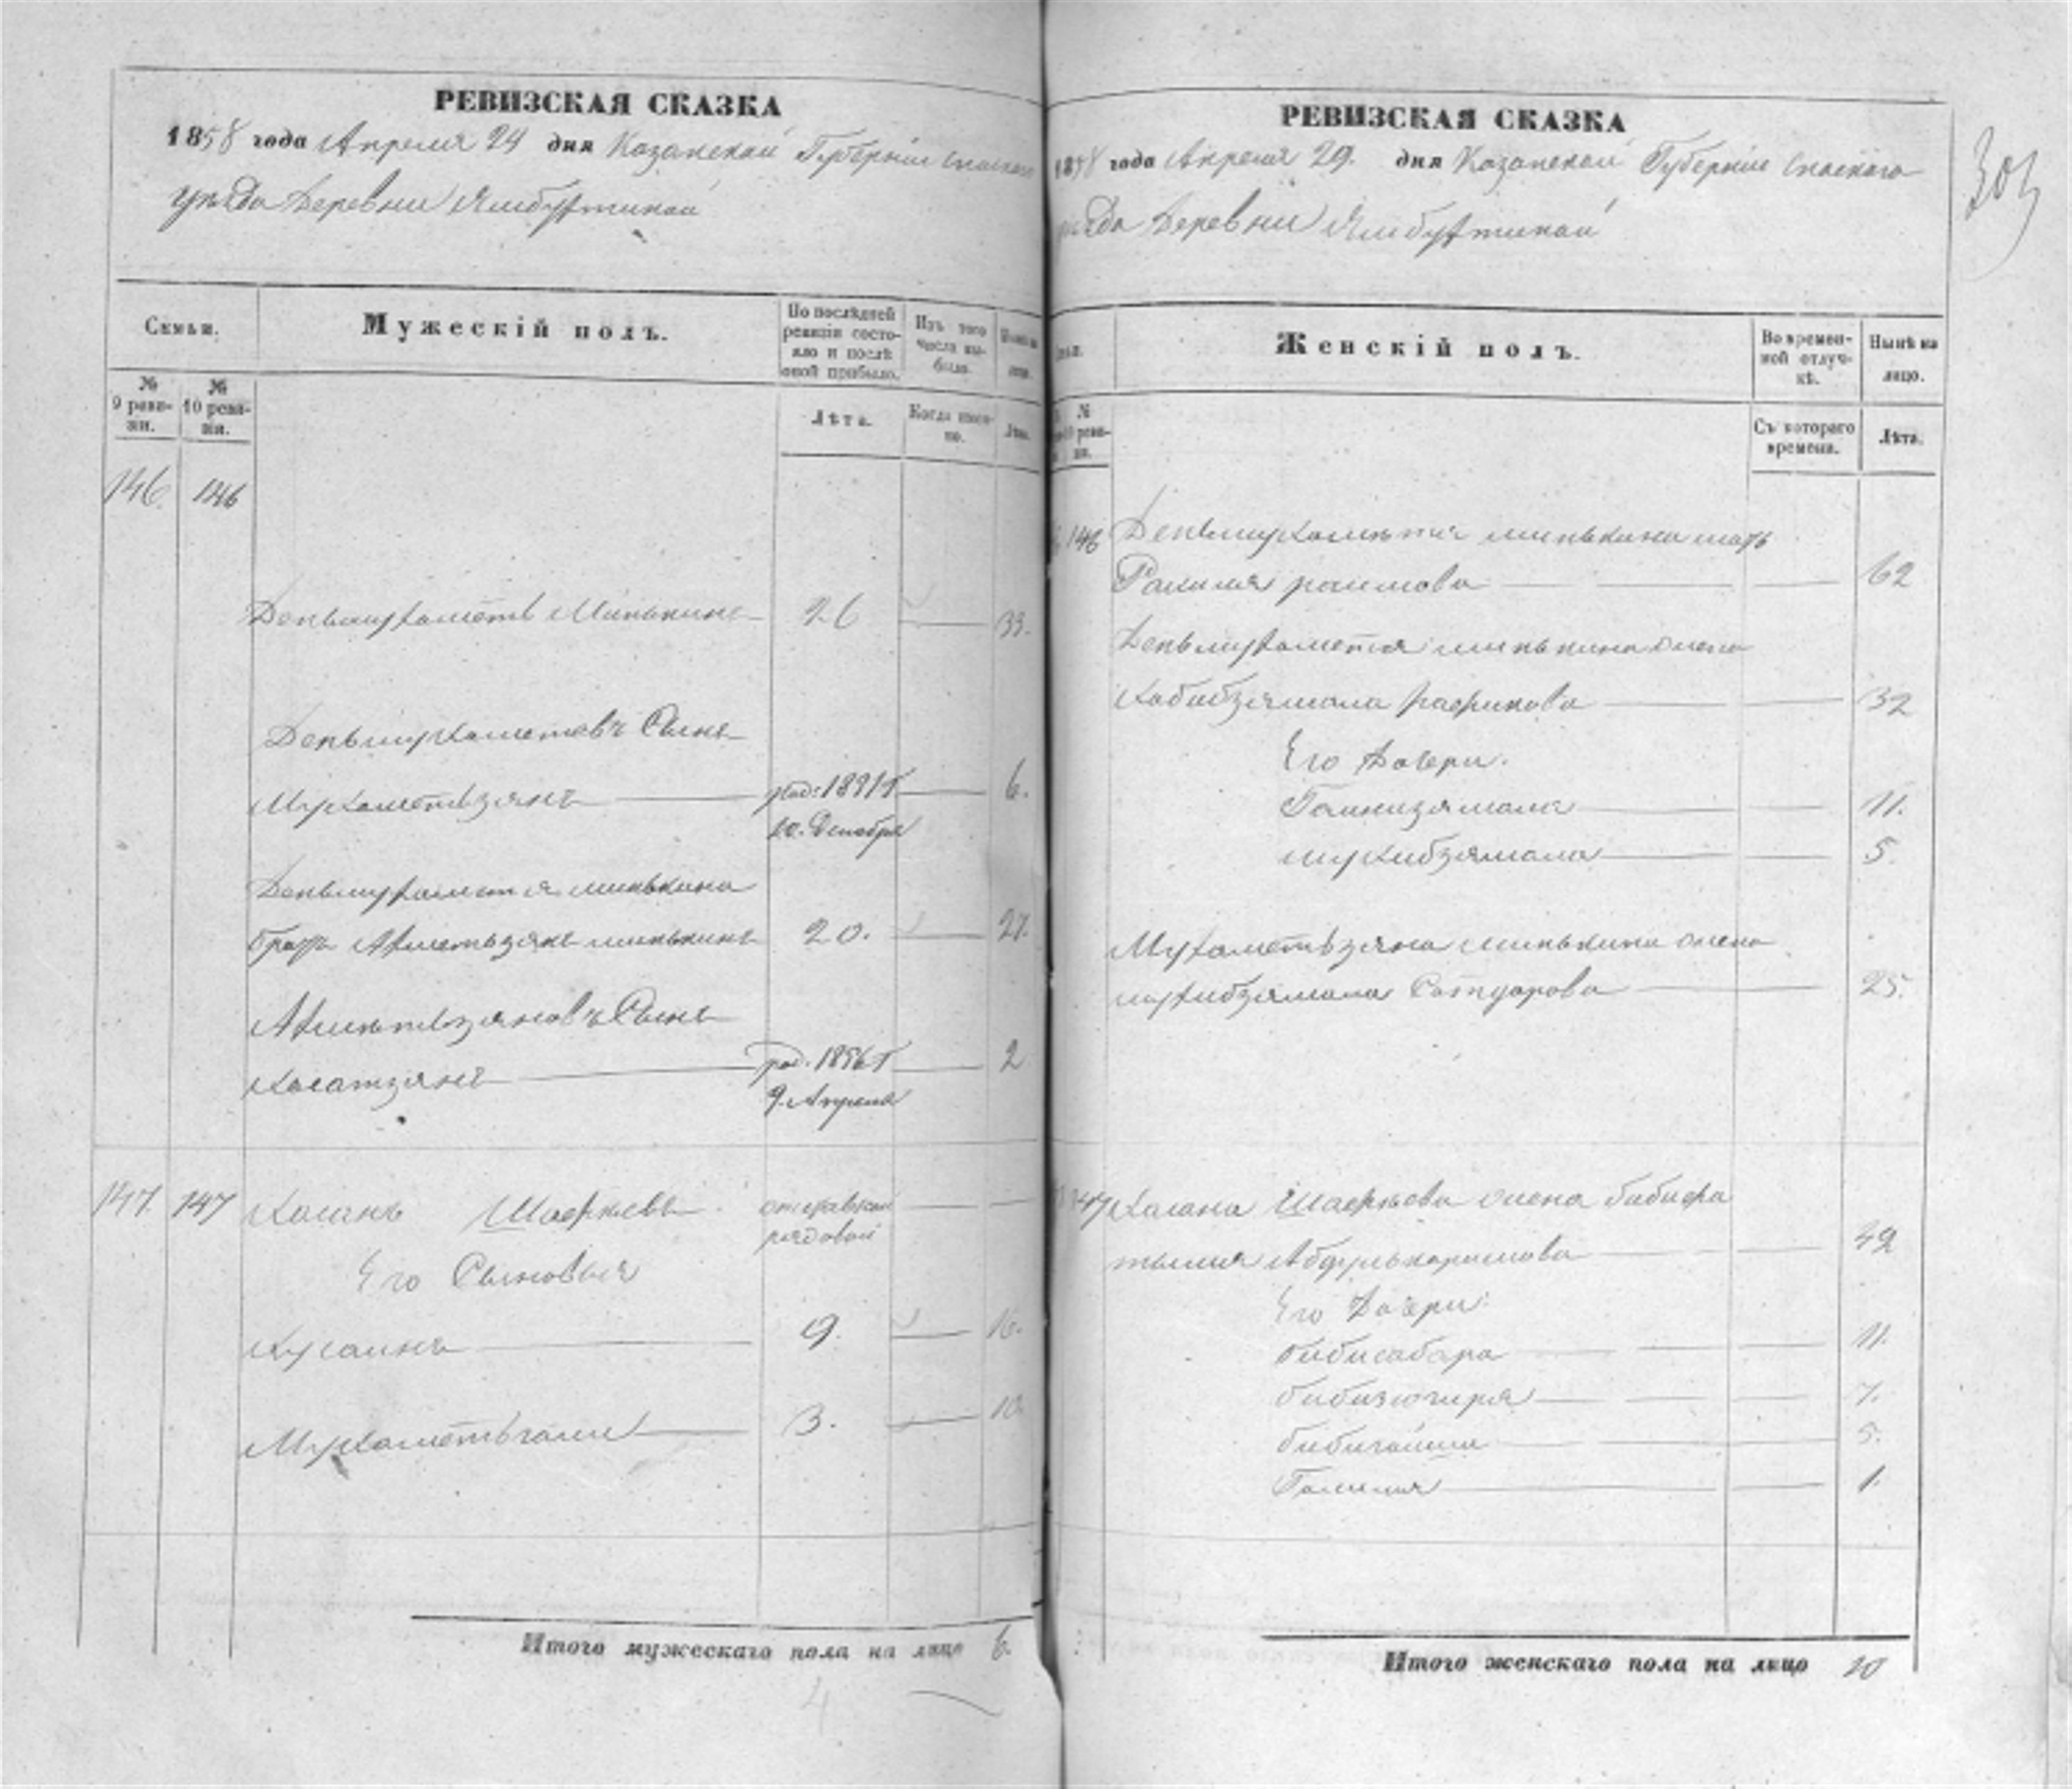 РЕВИЗСКАЯ СКАЗКА
1858 года Апреля 29 дня Казанской Губерніи Спаскаго
уезда Деревни Ямбухтиной
Семьи.
Мужескій полъ.
По послѣдней ревизіи состояло и послѣ оной прибыло.
Изъ того числа выбыло.
№ 9 ревизіи.
№ 10 ревизіи.
Лѣта.
Когда именно.
Лѣта.
146. 146
Деньмухаметъ Минькинъ 26 33.
Деньмухаметевъ Сынъ
Мухаметьзянъ род: 1851 г 6.
10. Декабря
Деньмухаметя минькина
братъ Ахметьзянъ минькинъ 20. 27.
Ахметьзяновъ Сынъ
Хасатзянъ род. 1856 г 2
9. Апреля
147. 147 Хасанъ Шаеркевъ отставной
рядовой
Его Сыновья
Хусаинъ 9. 16.
Мухаметьгали 3. 10
Итого мужескаго пола на лицо 6.
4
РЕВИЗСКАЯ СКАЗКА
1858 года Апреля 29. дня Казанской Губерніи Спаскаго
уезда Деревни Ямбухтиной
303
Женскій полъ.
Во временной отлучкѣ.
Нынѣ на лицо.
Съ котораго времени.
Лѣта.
146 Деньмухаметя минькина мать
Рахиля 62
Деньмухаметя минькина жена
Хабибзямала 32
Его Дочери.
11.
мухибзямала 5.
Мухаметьзяна минькина жена
мухибзямала Сатдарова 25.
147 Хасана Шаеркева жена бибифа
тымия Абдулькаримова 42
Его Дочери:
бибисабара 11.
7.
5.
Галимя 1.
Итого женскаго пола на лицо 10